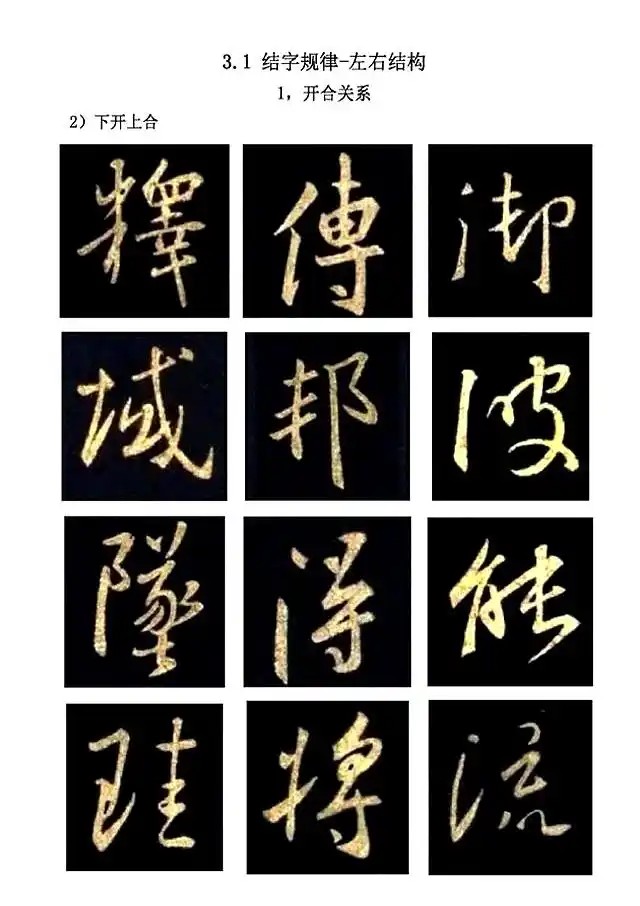 3.1 结字规律-左右结构
1，开合关系
2）下开上合
釋 傳 御
域 邦 波
墜 得 能
珪 將 流